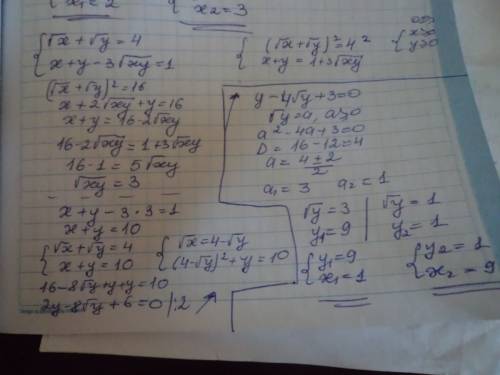 x₁=2
x₂=3
{√x+√y=4
{x+y-3√xy=1
{(√x+√y)²=4²
{x+y=1+3√xy
{x≥0
{y≥0
(√x+√y)²=16
x+2√xy+y=16
x+y=16-2√xy
16-2√xy=1+3√xy
16-1=5√xy
√xy=3
x+y-3·3=1
x+y=10
{√x+√y=4
{x+y=10
{√x=4-√y
{(4-√y)²+y=10
16-8√y+y+y=10
2y-8√y+6=0 |:2
y-4√y+3=0
√y=a, a≥0
a²-4a+3=0
D=16-12=4
a=4±2/2
a₁=3 a₂=1
√y=3 | √y=1
y₁=9 | y₂=1
{y₁=9
{x₁=1
{y₂=1
{x₂=9